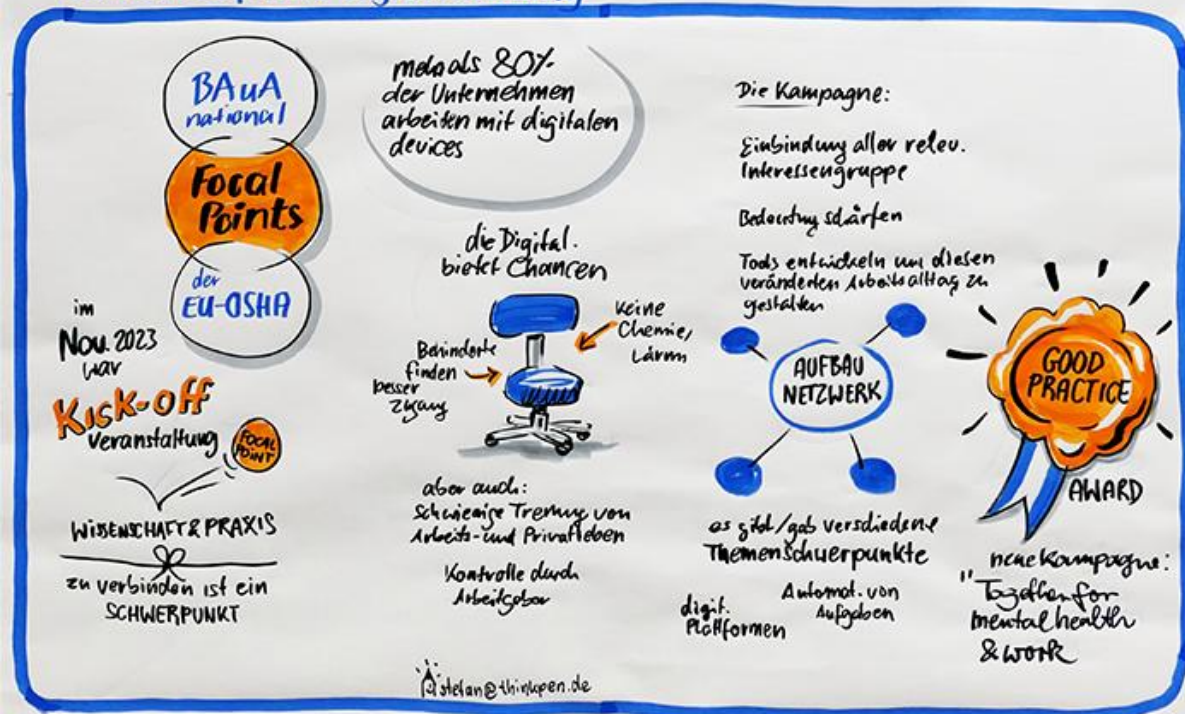 BAuA
national
Focal
Points
der
EU-OSHA
im
Nov. 2023
war
Kick-off
veranstaltung
FOCAL
POINT
WISSENSCHAFT & PRAXIS
zu verbinden ist ein
SCHWERPUNKT
mehr als 80%
der Unternehmen
arbeiten mit digitalen
devices
die Digital.
bietet Chancen
Keine
Chemie,
Lärm
Behinderte
finden
besser
Zugang
aber auch:
Schwierige Trennung von
Arbeits- und Privatleben
Kontrolle durch
Arbeitgeber
stefan@thinkpen.de
Die Kampagne:
Einbindung aller relev.
Interessengruppe
Bedeutung schärfen
Tools entwickeln um diesen
veränderten Arbeitsalltag zu
gestalten
AUFBAU
NETZWERK
es gibt/gab verschiedene
Themenschwerpunkte
digit.
Plattformen
Automat. von
Aufgaben
GOOD
PRACTICE
AWARD
neue Kampagne:
"Together for
mental health
& work